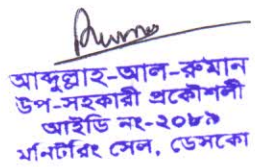 আব্দুল্লাহ-আল-রুমান
উপ-সহকারী প্রকৌশলী
আইডি নং-২০৮৯
মনিটরিং সেল, ডেসকো